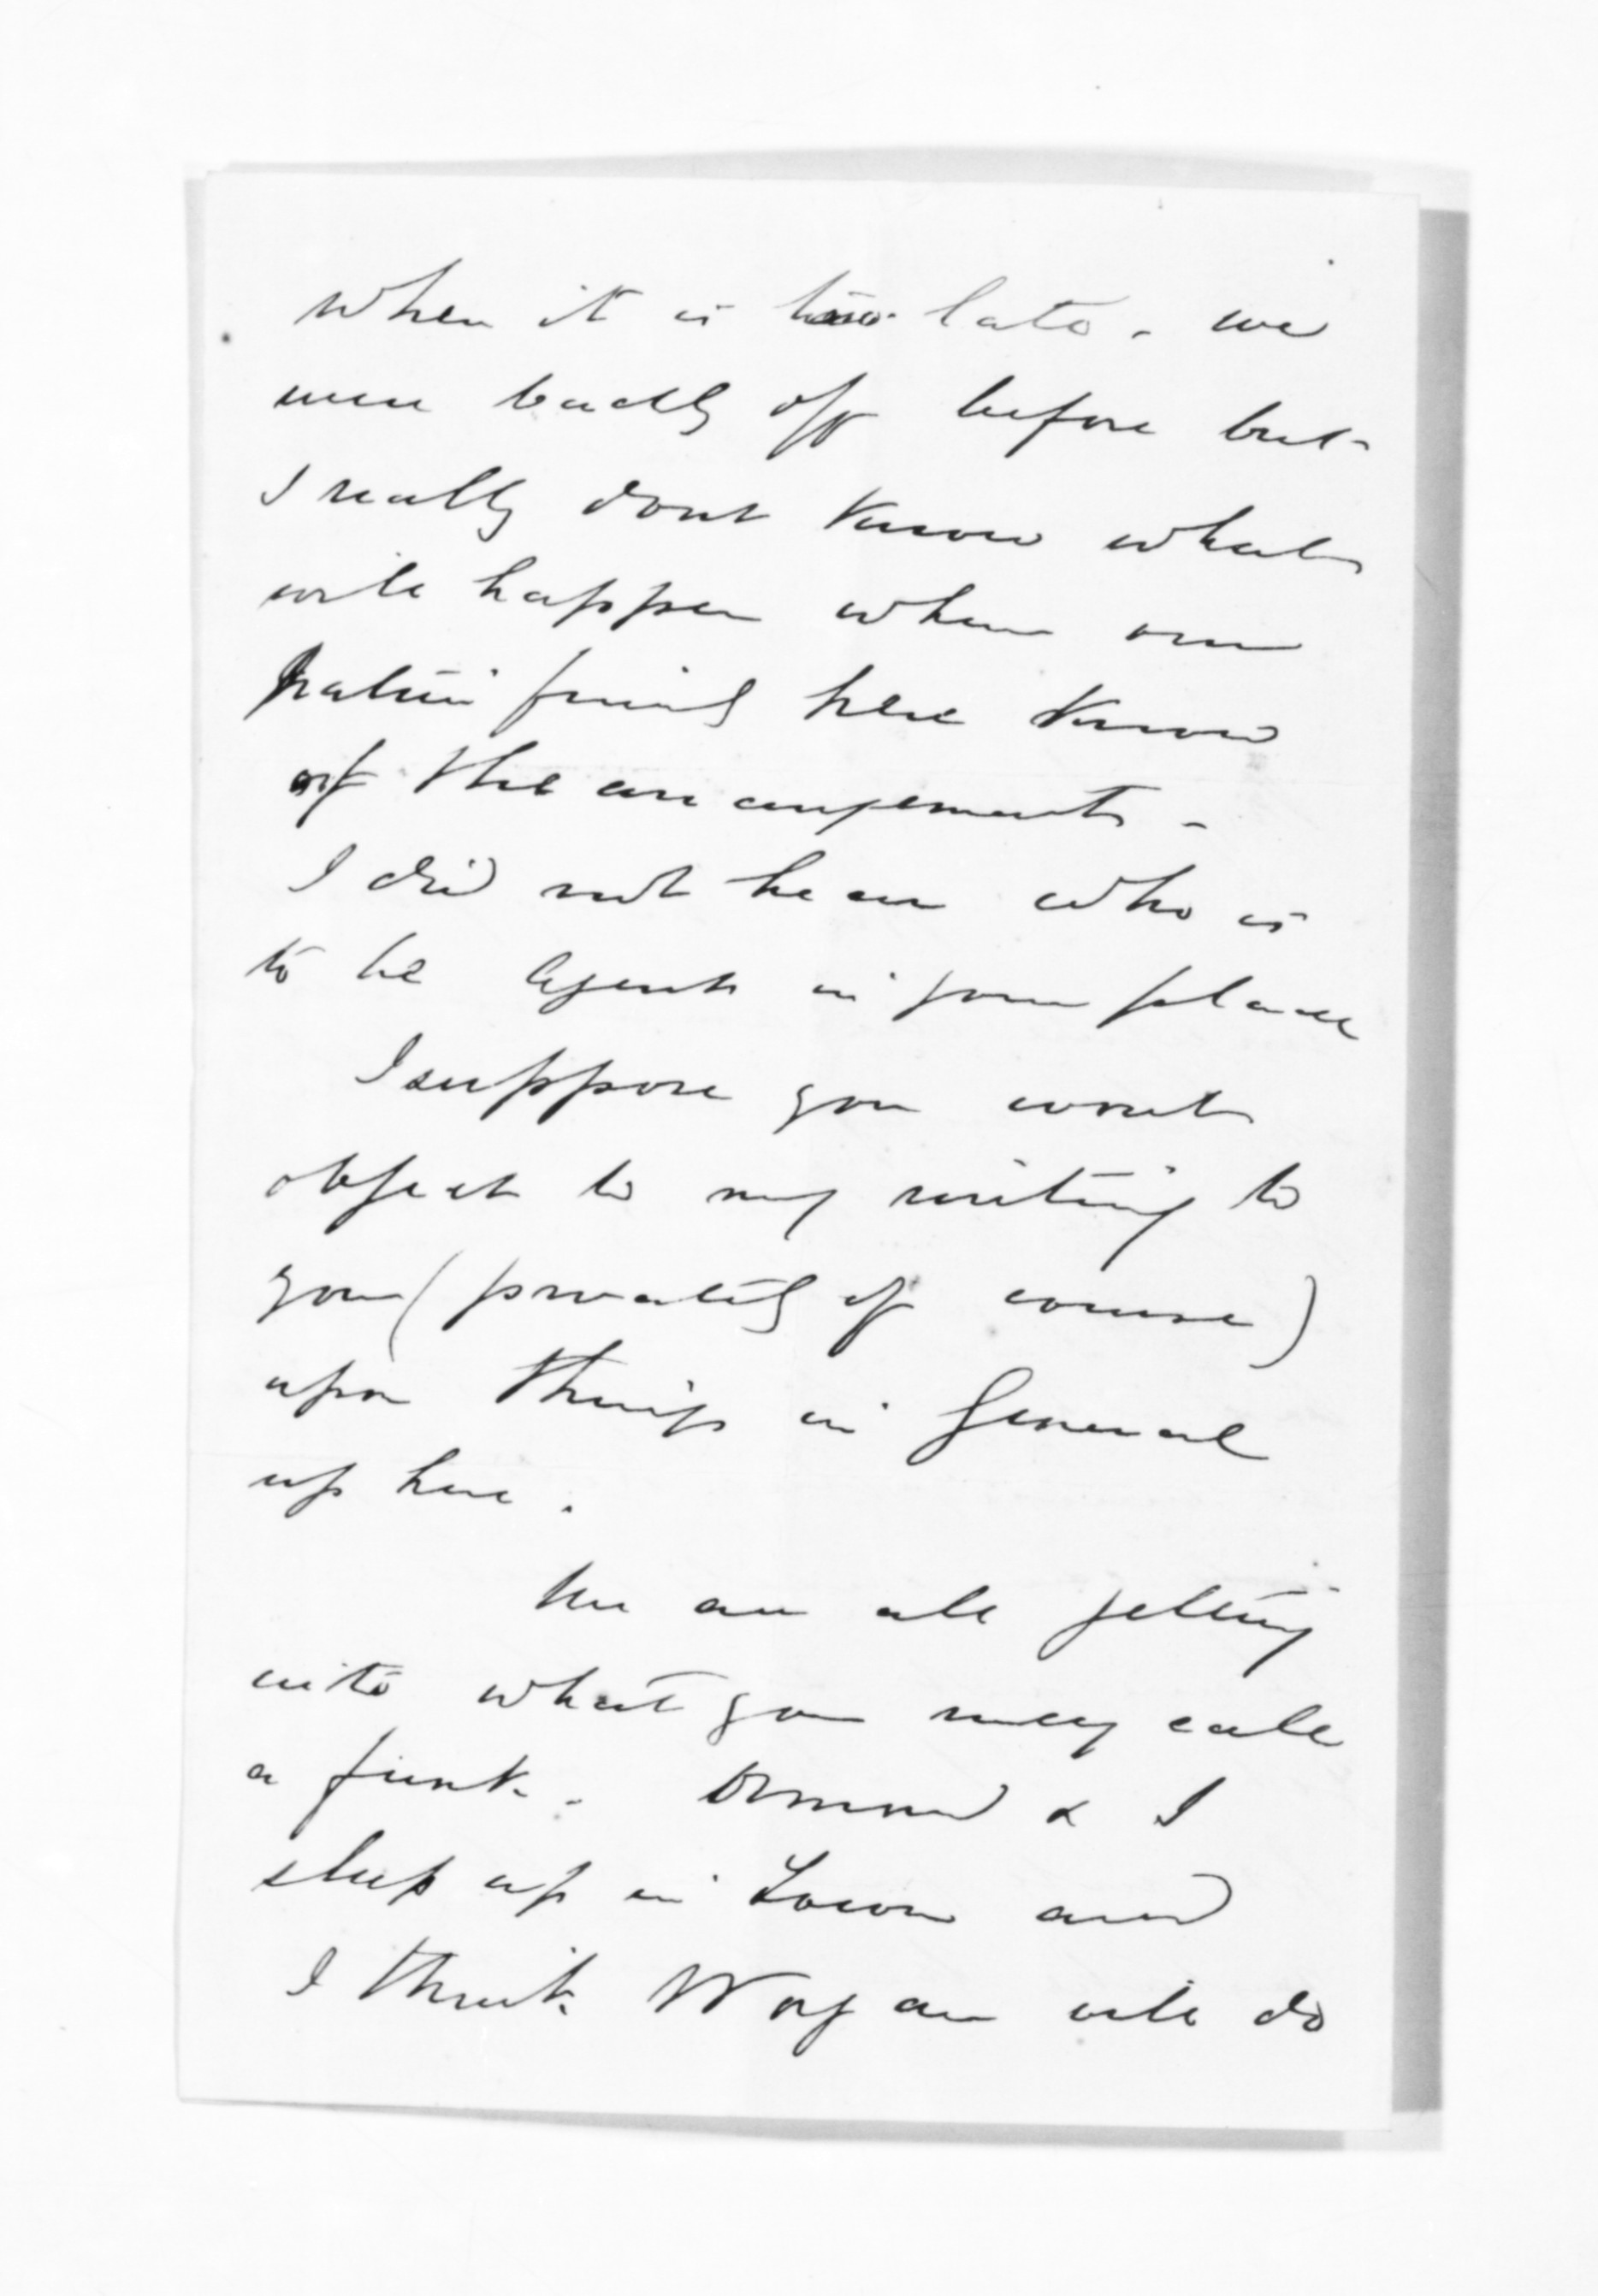 when it is too late - we
were badly off before but
I really dont know what
will happen when our
native friends here know
of the arrangements -
I did not hear who is
to be Agent in your place
I suppose you wont
object to my writing to
you (privately of course)
upon things in General
up here.
We are all getting
into what you may call
a funk - Ormond & I
sleep up in Town and
I think Worgan will do